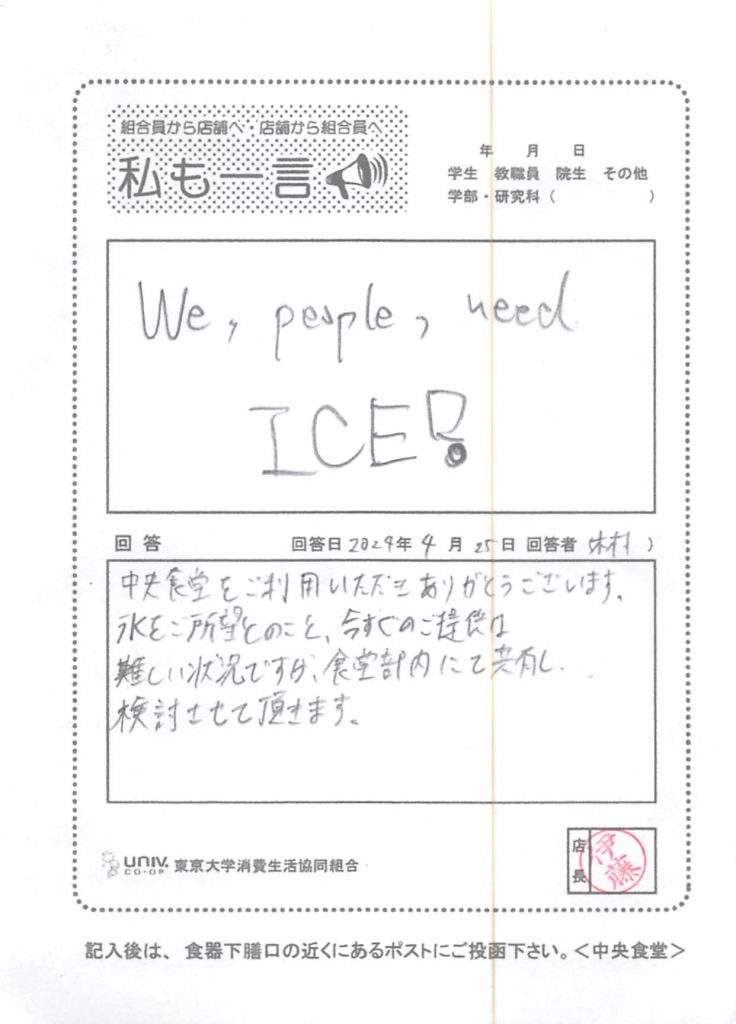 組合員から店舗へ・店舗から組合員へ
私も一言
年 月 日
学生 教職員 院生 その他
学部・研究科( )
We, people, need
ICE!
回答 回答日 2024年 4月 25日 回答者 木村 )
中央食堂をご利用いただきありがとうございます。
氷をご所望とのこと、今すぐのご提供は
難しい状況ですが、食堂部内にて共有し、
検討させて頂きます。
UNIV. CO-OP 東京大学消費生活協同組合
店長 伊藤
記入後は、食器下膳口の近くにあるポストにご投函下さい。<中央食堂>